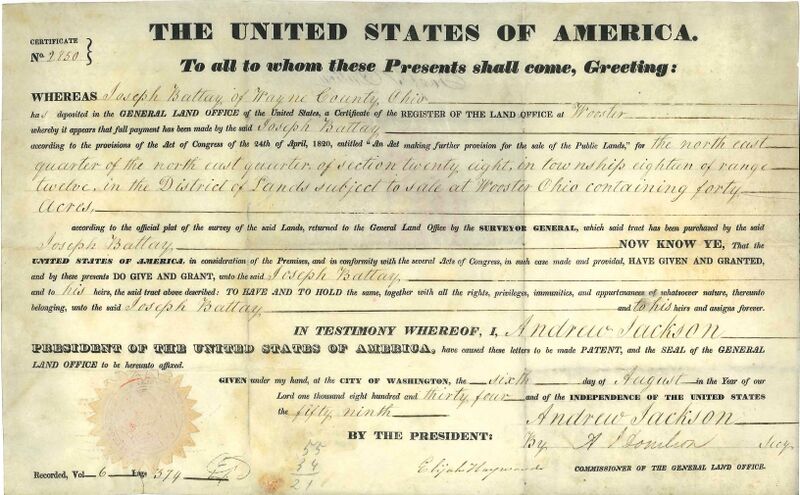 THE UNITED STATES OF AMERICA.
CERTIFICATE
No. 2850
To all to whom these Presents shall come, Greeting:
WHEREAS Joseph Battay, of Wayne County, Ohio
has deposited in the GENERAL LAND OFFICE of the United States, a Certificate of the REGISTER OF THE LAND OFFICE at Wooster
whereby it appears that full payment has been made by the said Joseph Battay
according to the provisions of the Act of Congress of the 24th of April, 1820, entitled "An Act making further provision for the sale of the Public Lands," for the north east
quarter of the north east quarter of section twenty eight, in township eighteen of range
twelve, in the District of Lands subject to sale at Wooster Ohio containing forty
Acres,
according to the official plat of the survey of the said Lands, returned to the General Land Office by the SURVEYOR GENERAL, which said tract has been purchased by the said
Joseph Battay NOW KNOW YE, That the
UNITED STATES OF AMERICA, in consideration of the Premises, and in conformity with the several Acts of Congress, in such case made and provided, HAVE GIVEN AND GRANTED,
and by these presents DO GIVE AND GRANT, unto the said Joseph Battay,
and to his heirs, the said tract above described: TO HAVE AND TO HOLD the same, together with all the rights, privileges, immunities, and appurtenances of whatsoever nature, thereunto
belonging, unto the said Joseph Battay and to his heirs and assigns forever.
IN TESTIMONY WHEREOF, I, Andrew Jackson
PRESIDENT OF THE UNITED STATES OF AMERICA, have caused these letters to be made PATENT, and the SEAL of the GENERAL
LAND OFFICE to be hereunto affixed.
GIVEN under my hand, at the CITY OF WASHINGTON, the sixth day of August in the Year of our
Lord one thousand eight hundred and thirty four and of the INDEPENDENCE OF THE UNITED STATES
the fifty ninth
Andrew Jackson
BY THE PRESIDENT:
By A J Donelson Secy
55
34
21
Elijah Hayward COMMISSIONER OF THE GENERAL LAND OFFICE.
Recorded, Vol 6 Page 374